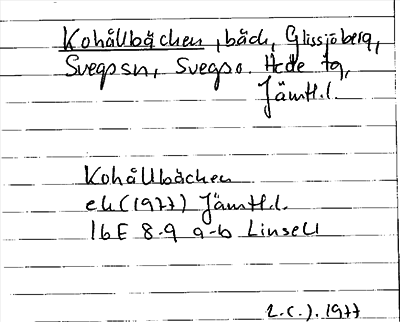 Kohållbäcken, bäck, Glissjöberg,
Svegs sn, Svegs o. Hede tg,
Jämtl.l.
Kohållbäcken
ek (1977) Jämtl.l.
16E 8-9 a-b Linsell
L.C.J. 1977